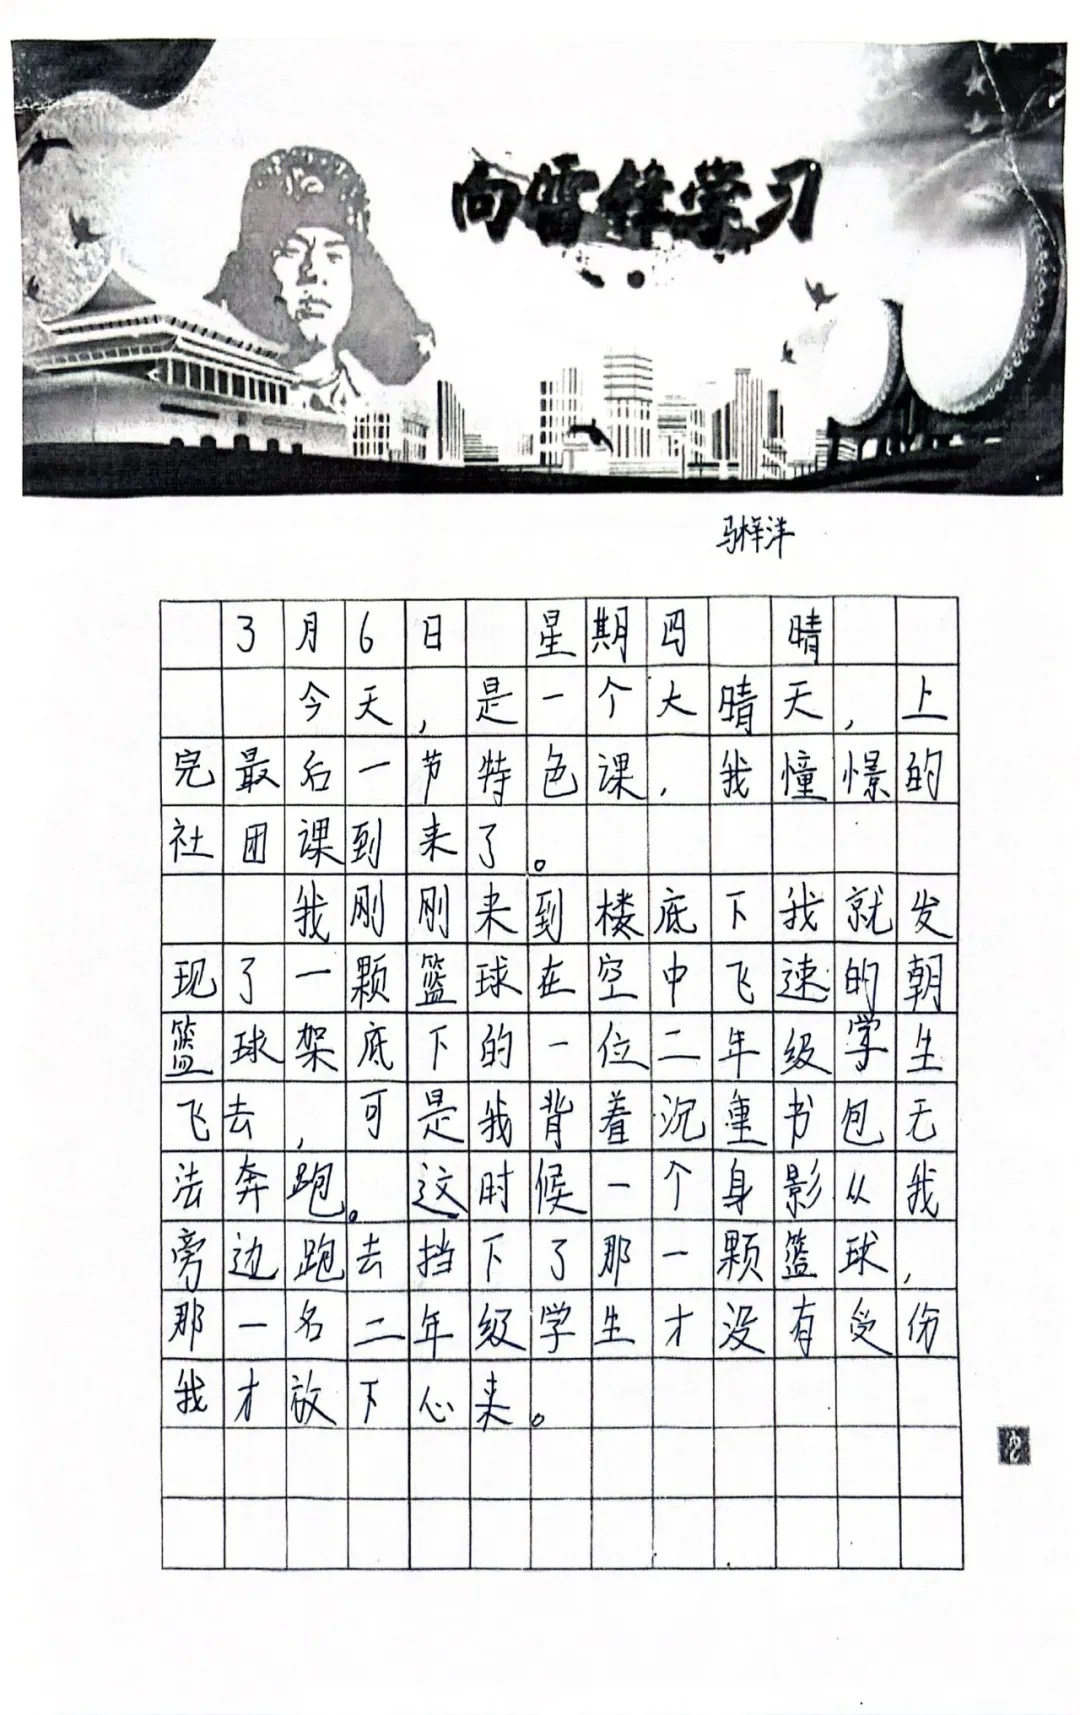 向雷锋学习
马梓洋
3月6日 星期四 晴
今天,是一个大晴天,上
完最后一节特色课,我憧憬的
社团课到来了。
我刚刚来到楼底下我就发
现了一颗篮球在空中飞速的朝
篮球架底下的一位二年级学生
飞去,可是我背着沉重书包无
法奔跑。这时候一个身影从我
旁边跑去挡下了那一颗篮球,
那一名二年级学生才没有受份
我才放下心来。